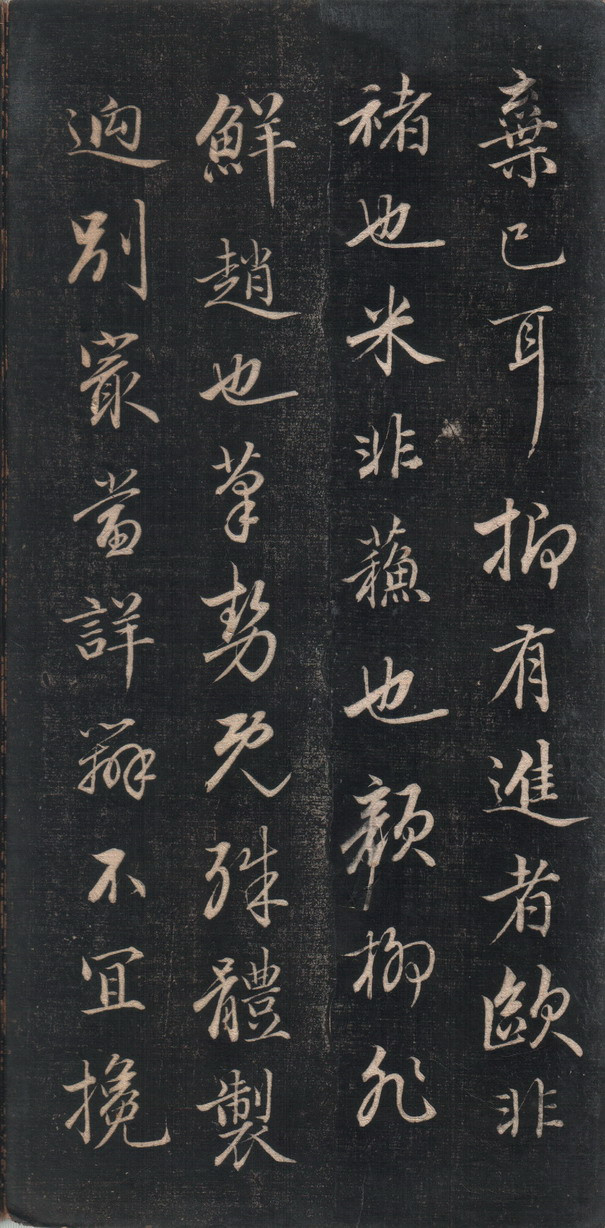 棄已耳抑有進者歐非
褚也米非蘓也顔柳非
鮮趙也筆勢既殊體製
迥別最當詳辨不宜攙